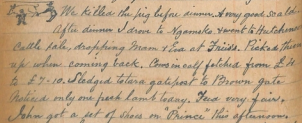 We killed the pig before dinner. A very good scald
After dinner I drove to Ngamoko & went to Hutchinson
Cattle sale, dropping Mam & Eva at Frids. Picked them
up when coming back. Cows in calf fetched from £4
to £7-10. Sledged totara gate post to Brown gate
Noticed only one fresh lamb today. Feed very fair.
John got a set of shoes on Prince this afternoon.